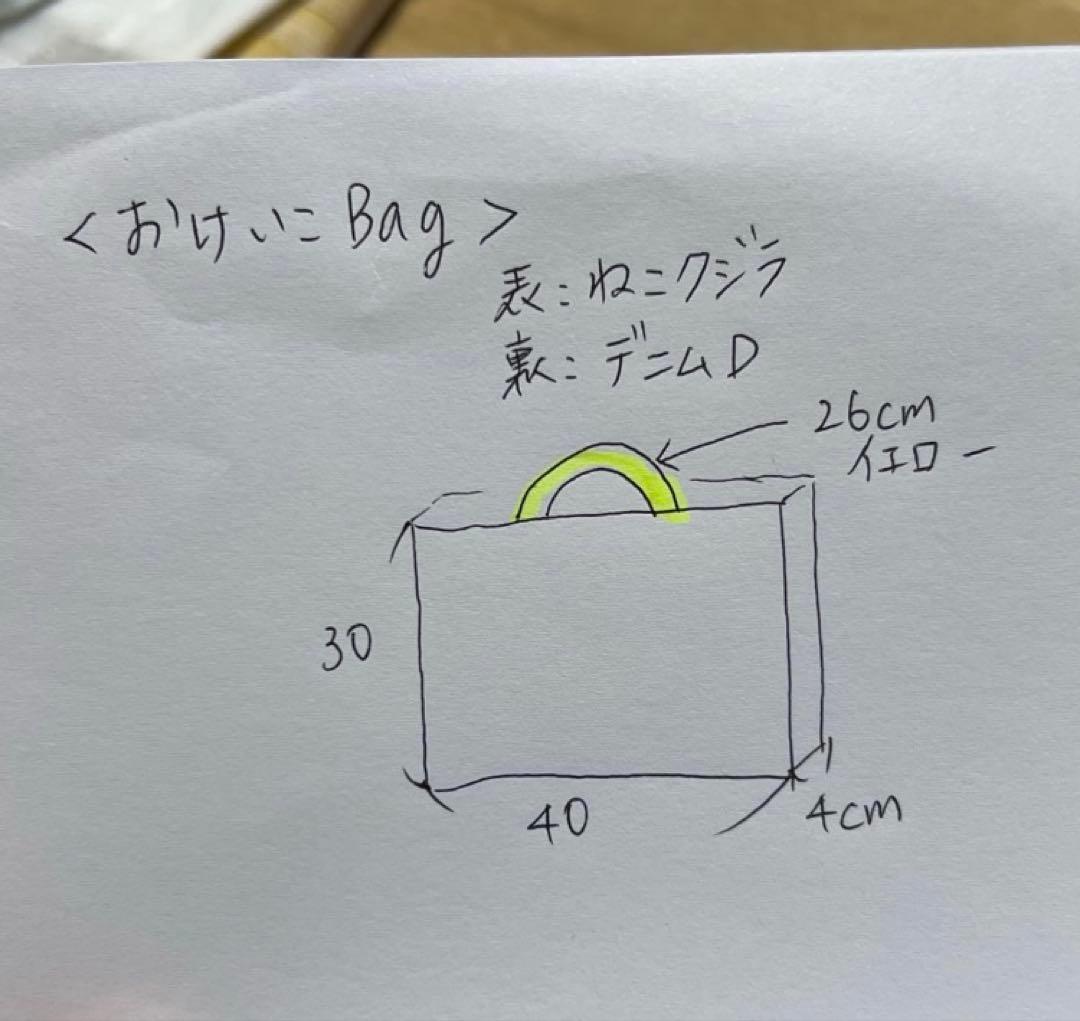 <おけいこBag>
表:ねこクジラ
裏:デニムD
26cm
イエロー
30
40
4cm